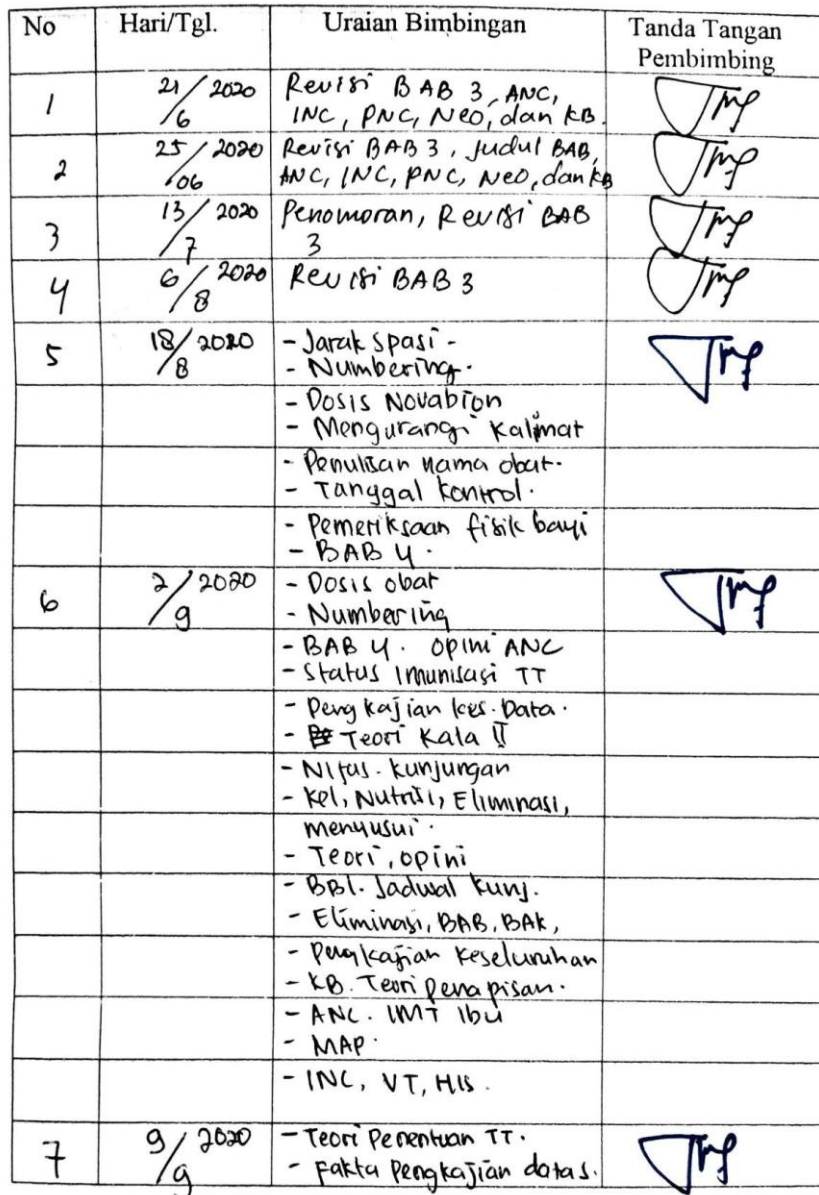 No Hari/Tgl. Uraian Bimbingan Tanda Tangan
Pembimbing
1 21/6 2020 Revisi BAB 3, ANC,
INC, PNC, Neo, dan KB.
2 25/06 2020 Revisi BAB 3, Judul BAB,
ANC, INC, PNC, Neo, dan KB
3 13/7 2020 Penomoran, Revisi BAB
3
4 6/8 2020 Revisi BAB 3
5 18/8 2020 - Jarak spasi -
- Numbering.
- Dosis Novabion
- Mengurangi Kalimat
- Penulisan nama obat.
- Tanggal kontrol.
- Pemeriksaan fisik bayi
- BAB 4.
6 2/9 2020 - Dosis obat
- Numbering
- BAB 4. opini ANC
- Status Imunisasi TT
- Pengkajian kes. Data.
- Teori Kala II
- Nifas. kunjungan
- Kel, Nutrisi, Eliminasi,
menyusui.
- Teori, opini
- BBL. Jadwal kunj.
- Eliminasi, BAB, BAK,
- Pengkajian keseluruhan
- KB. Teori penapisan.
- ANC. IMT Ibu
- MAP.
- INC, VT, HIS.
7 9/9 2020 - Teori Penentuan TT.
- Fakta Pengkajian datas.